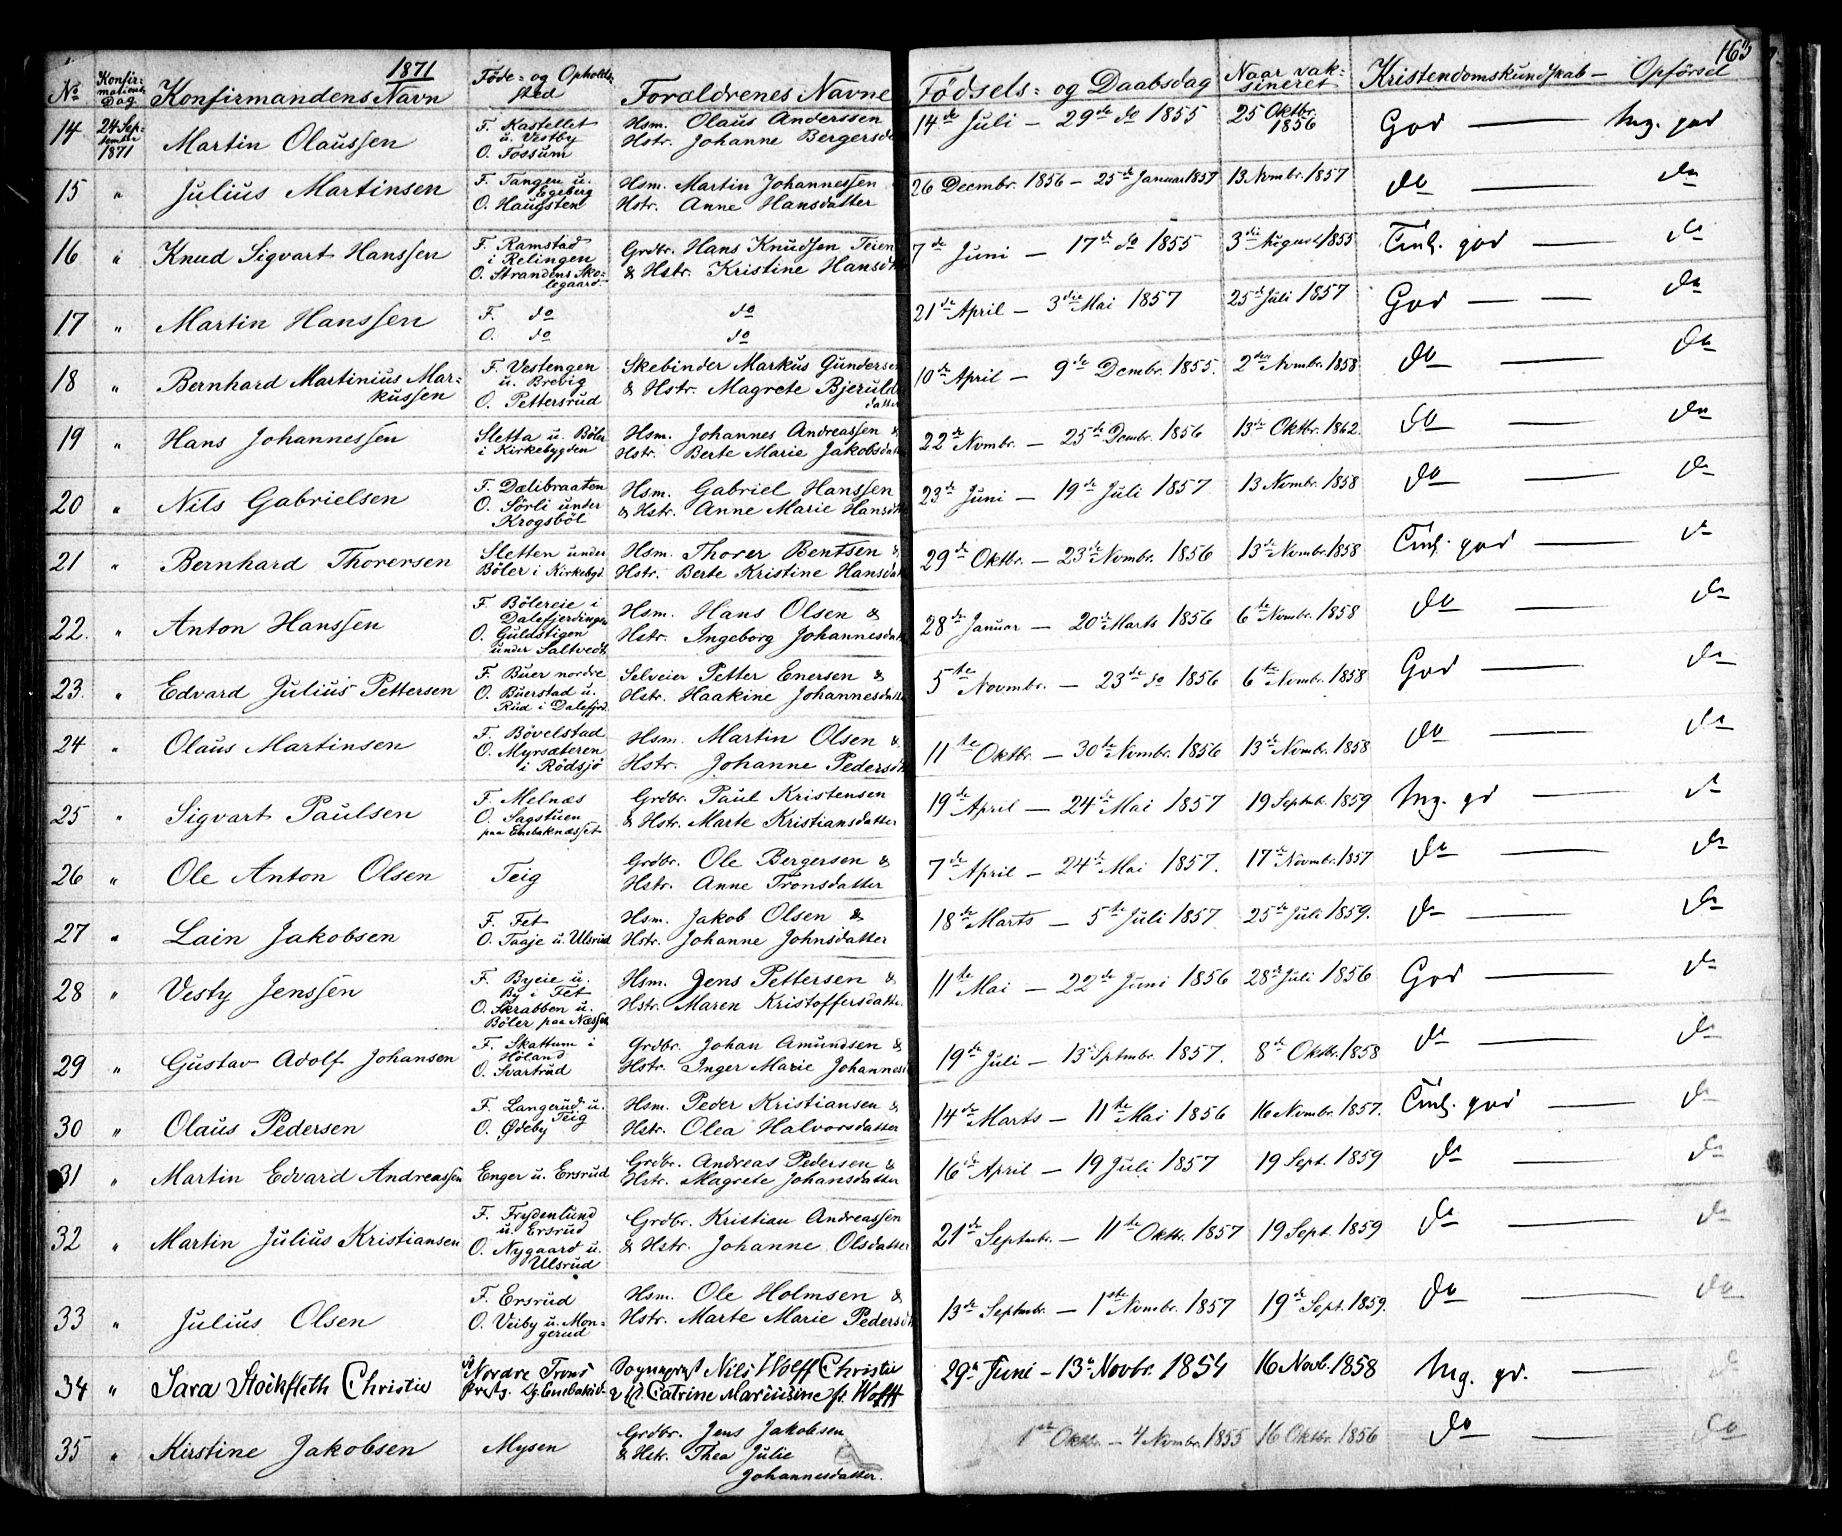 1871
165
No Konfirmations Dag Konfirmandens Navn Föde- og Opholdssted Forældrenes Navne Födsels- og Daabsdag Naar vaksineret Kristendomskundskab — Opförsel
14 24 September 1871 Martin Olaussen F. Kastellet u. Vestby O. Fossum Hsm. Olaus Anderssen Hstr. Johanne Bergersd 14de Juli — 29de do 1855 25 Oktbr. 1856 God — Mg. god
15 " Julius Martinsen F. Tangen u. Egeberg O. Haugsten Hsm. Martin Johannessen Hstr. Anne Hansdatter 26 Decmbr. 1856 — 25de Januar 1857 13 Nvmbr. 1857 do — do
16 " Knud Sigvart Hanssen F. Ramstad i Relingen O. Strandens Skolegaard Grdbr. Hans Knudsen Teien & Hstr. Kristine Hansd 7de Juni — 17de do 1855 3die August 1855 Tml. god — do
17 " Martin Hanssen F. do O. do do do 21de April — 3die Mai 1857 25de Juli 1857 God — do
18 " Bernhard Martinius Markussen F. Vestengen u. Brevig O. Pettersrud Skebinder Markus Gundersen & Hstr. Magrete Bjerulddatter 10de April — 9de Dcmbr. 1855. 2den Nvmbr. 1858 do — do
19 " Hans Johannessen Sletta u. Böler i Kirkebygden Hsm. Johannes Andreassen & Hstr. Berte Marie Jakobsdatter 22de Nvmbr. — 25de Dcmbr. 1856 13de Oktbr. 1862. do — do
20 " Nils Gabrielsen F. Dælibraaten O. Sörli under Krogsböl Hsm. Gabriel Hanssen & Hstr. Anne Marie Hansd 23de Juni — 19de Juli 1857 13 Nvmbr. 1858 do — do
21 " Bernhard Thorersen Sletten under Böler i Kirkebygd Hsm. Thorer Bentsen & Hstr. Berte Kristine Hansdatt 29de Oktbr. — 23de Nvmbr. 1856 13de Nvmbr. 1858 Tml. god — do
22. " Anton Hanssen F. Bölereie i Dalefjerdingen O. Guldstigen under Saltvedt Hsm. Hans Olsen & Hstr. Ingeborg Johannesdatt 28de Januar — 20de Marts 1856 6te Nvmbr. 1858 do — do
23. " Edvard Julius Pettersen F. Buer nordre O. Buerstad u. Rud i Dalefjrd. Selveier Petter Enersen & Hstr. Haakine Johannesdatte 5te Novmbr. — 23de do 1856 6te Nvmbr. 1858 God — do
24 " Olaus Martinsen F. Bövelstad O. Myrsæteren i Rödsjö Hsm. Martin Olsen & Hstr. Johanne Pedersd 11te Oktbr. — 30te Nvmbr. 1856 13de Nvmbr. 1858 do — do
25 " Sigvart Paulsen F. Melnæs O. Sagstuen paa Enebaknæsset Grdbr. Paul Kristensen & Hstr. Marte Kristiansdatter 19de April — 24de Mai 1857 19 Septmbr. 1859 Mg. gd — do
26 " Ole Anton Olsen Teig Grdbr. Ole Bergersen & Hstr. Anne Tronsdatter 7de April — 24de Mai 1857. 17de Novmbr. 1857 do — do
27 " Lain Jakobsen F. Fet O. Taaje u. Ulsrud Hsm. Jakob Olsen & Hstr. Johanne Johnsdatter 18de Marts — 5te Juli 1857. 25de Juli 1859. do — do
28 " Vesty Jenssen F. Byeie u. By i Fet O. Skrabben u. Böler paa Næsset Hsm. Jens Pettersen & Hstr. Maren Kristoffersdatte. 11te Mai — 22de Juni 1856 28de Juli 1856 God — do
29 " Gustav Adolf Johansen F. Skattum i Höland O. Svartrud Grdbr. Johan Amundsen & Hstr. Inger Marie Johannesd 19de Juli — 13de Sptmbr. 1857. 8de Oktbr. 1858 do — do
30 " Olaus Pedersen F. Langerud u. Teig O. Ødeby Hsm. Peder Kristiansen & Hstr. Olea Halvorsdatter 14de Marts — 11te Mai 1856 16 Nvmbr. 1857. Tml. god — do
31 " Martin Edvard Andreassen Enger u. Ersrud Grdbr. Andreas Pedersen & Hstr. Magrete Johansdatter 16de April — 19 Juli 1857 19 Sept. 1859 do — do
32 " Martin Julius Kristiansen F. Frydenlund u. Ersrud O. Nygaard u. Ulsrud Grdbr. Kristian Andreassen & Hstr. Johanne Olsdatter 21de Septmbr. — 11te Oktbr. 1857 19 Sept. 1859 do — do
33 " Julius Olsen F. Ersrud O. Veiby u. Mongerud Hsm. Ole Holmsen & Hstr. Marte Marie Pedersd 13de Septmbr. — 1ste Nvmbr. 1857 19de Sept. 1859. do — do
34 " Sara Stockfleth Christie Nordre Trons Sognepræst Nils Wolff Christie & Catrine Marensine f. Wolff 29de Juni — 13de Novbr. 1854 16 Novb. 1858 Mg. gd. — d
35 " Kirstine Jakobsen Mysen Grdbr. Jens Jakobsen & Hstr. Thea Julie Johannesdatter. 1ste Oktbr. — 4 Nvmbr. 1855 16 Oktbr. 1856 do — do